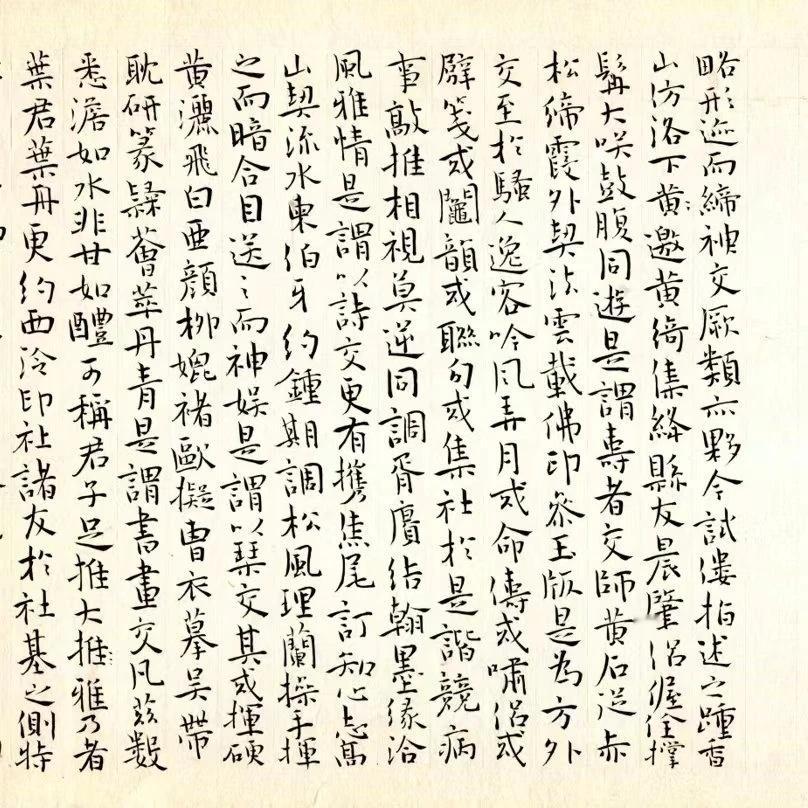 略形迹而締神交厥類亦夥今試僂指述之踵香
山仿洛下黃邀黃綺集絳縣友晨肇侶偓佺撐
髯大笑鼓腹同遊是謂壽者交師黃石從赤
松締霞外契法雲載佛印參玉版是為方外
交至於騷人逸客吟風弄月或命儔或嘯侶或
擘箋或鬮韻或聯句或集社於是諧競病
事敲推相視莫逆同調胥賡結翰墨緣洽
風雅情是謂以詩交更有攜焦尾訂知心志高
山契流水東伯牙約鍾期調松風理蘭操手揮
之而暗合目送之而神娛是謂以琹交其或揮硬
黃灑飛白亞顏柳媲褚歐擬曹衣摹吳帶
耽研篆隸薈萃丹青是謂書畫交凡茲數
悉澹如水非甘如醴可稱君子足推大推雅乃者
葉君葉舟更約西泠印社諸友於社基之側特